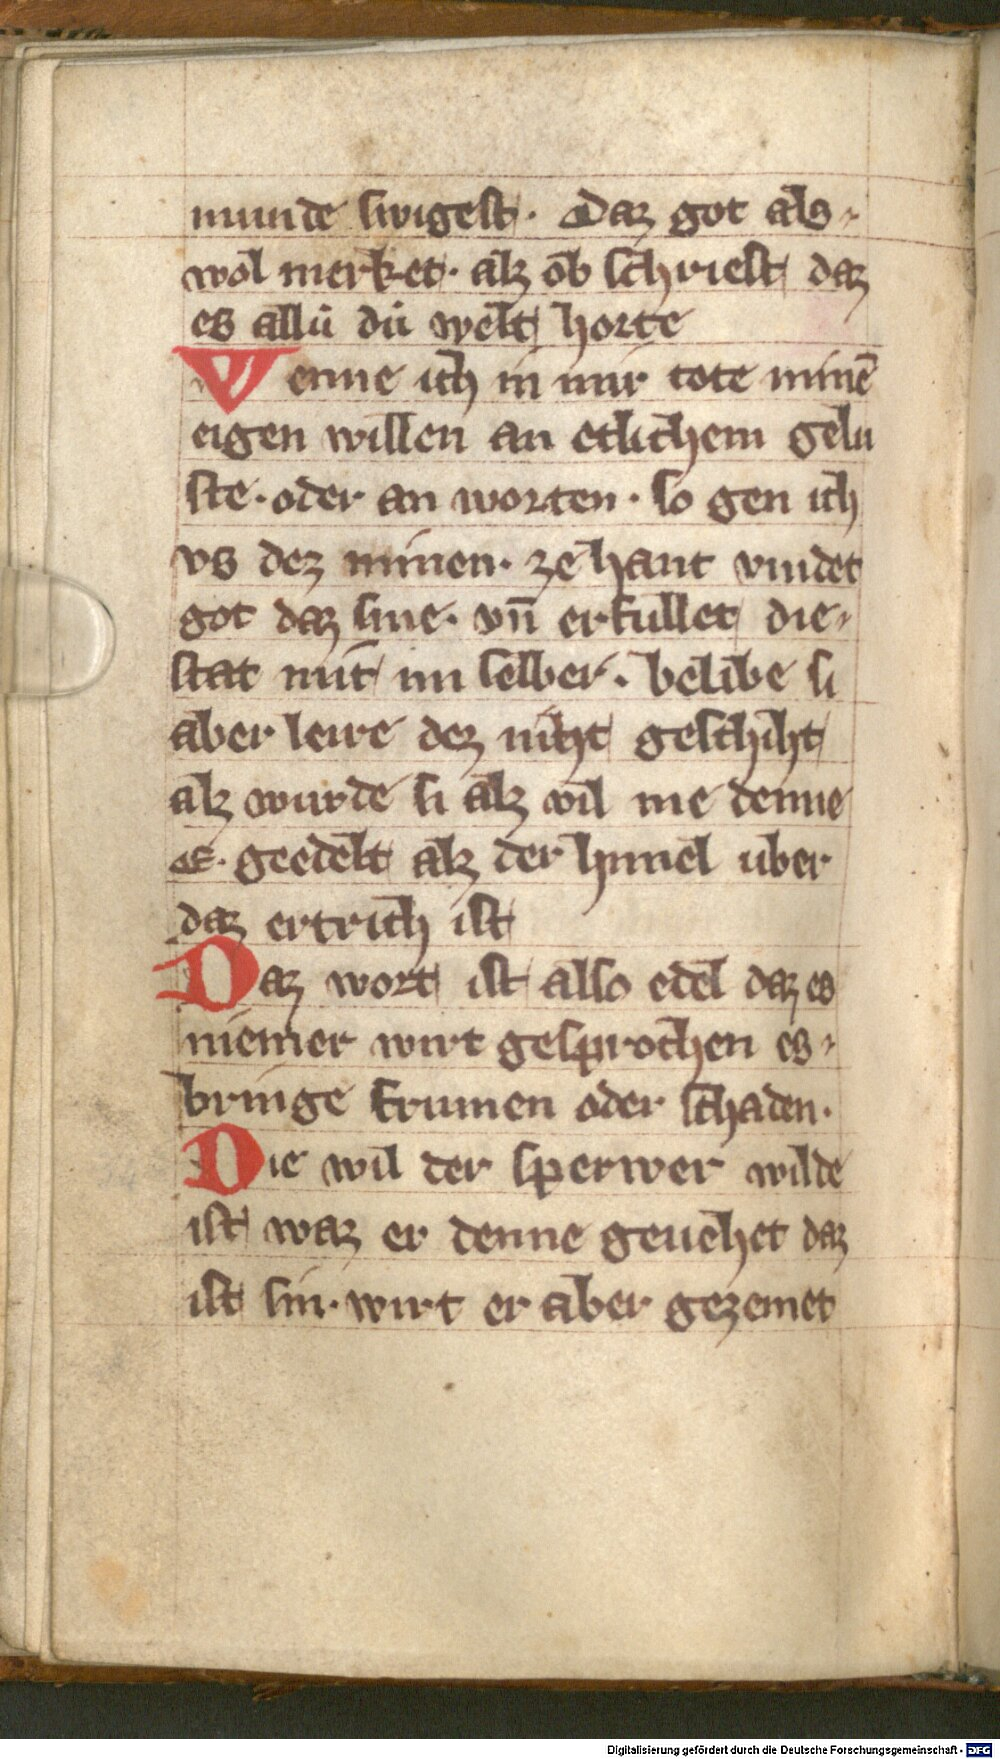 munde swigest. Daz got als-
wol merket. alz ob schriest daz
es allú dú welt horte
Wenne ich in mir tote minē
eigen willen an etlichem gelu
ste. oder an worten. so gen ich
vs dez minen. ze hant vindet
got daz sine. vn̄ erfullet die-
stat mit im selber. belibe si
aber leire dez niht geschiht
alz wurde si alz vil me denne
E. geedelt alz der himel uber
daz ertrich ist
Daz wort ist also edel daz es
niemer wirt gesprochen es-
bringe frumen oder schaden.
Die wil der sperwer wilde
ist waz er denne geuehet daz
ist sin. wirt er aber gezemet
Digitalisierung gefördert durch die Deutsche Forschungsgemeinschaft - DFG